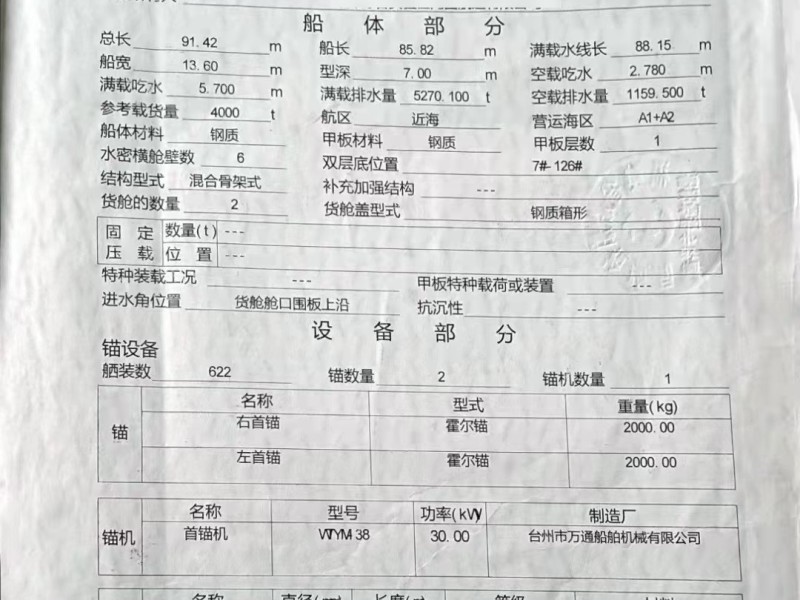 船 体 部 分
总长 91.42 m 船长 85.82 m 满载水线长 88.15 m
船宽 13.60 m 型深 7.00 m 空载吃水 2.780 m
满载吃水 5.700 m 满载排水量 5270.100 t 空载排水量 1159.500 t
参考载货量 4000 t 航区 近海 营运海区 A1+A2
船体材料 钢质 甲板材料 钢质 甲板层数 1
水密横舱壁数 6 双层底位置 7#-126#
结构型式 混合骨架式 补充加强结构 ---
货舱的数量 2 货舱盖型式 钢质箱形
固 定 数量(t) ---
压 载 位 置 ---
特种装载工况 --- 甲板特种载荷或装置 ---
进水角位置 货舱舱口围板上沿 抗沉性 ---
设 备 部 分
锚设备
舾装数 622 锚数量 2 锚机数量 1
名称 型式 重量(kg)
右首锚 霍尔锚 2000.00
锚
左首锚 霍尔锚 2000.00
名称 型号 功率(kW) 制造厂
锚机 首锚机 WTYM-38 30.00 台州市万通船舶机械有限公司
名称 直径(mm) 长度(m) 等级 材料